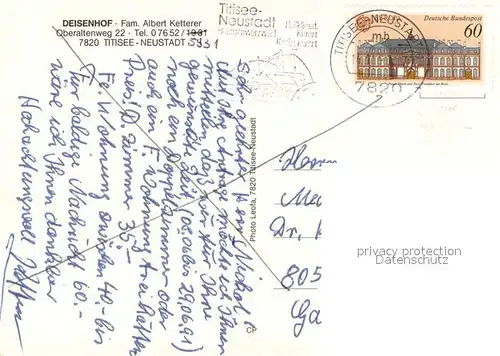 DEISENHOF · Fam. Albert Ketterer
Oberaltenweg 22 - Tel. 07652 / 1931 5931
7820 TITISEE-NEUSTADT
Titisee-
Neustadt
Hochschwarzwald
Kurort
TITISEE-NEUSTADT
mb
7820
Deutsche Bundespost
60
Photo Leofa, 7820 Titisee-Neustadt
Sehr geehrter Herr Nickol!
Auf Ihre Anfrage möchte ich Ihnen
mitteilen, daß wir für Ihre
gewünschte Zeit (08.06 bis 29.06.91)
noch ein Doppelzimmer oder
auch ein F. Wohnung frei hätten.
Preis: D. Zimmer 35.-
Fe. Wohnung zwischen 40.- bis
60.-
Für baldige Nachricht
wäre ich Ihnen dankbar
Hochachtungsvoll
Herrn
Dr.
805
Ga
privacy protection
Datenschutz